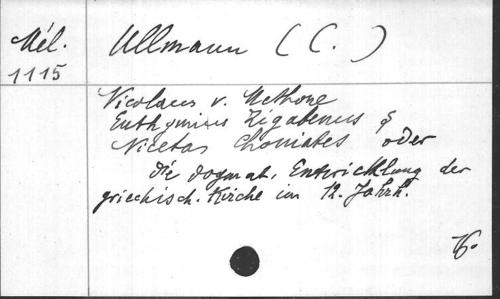 Mél.
1115
Ullmann (C.)
Nicolaus v. Methone
Euthymius Zigabenus &
Nicetas Choniates oder
die dogmat. Entwicklung der
griechisch. Kirche im 12. Jahrh.